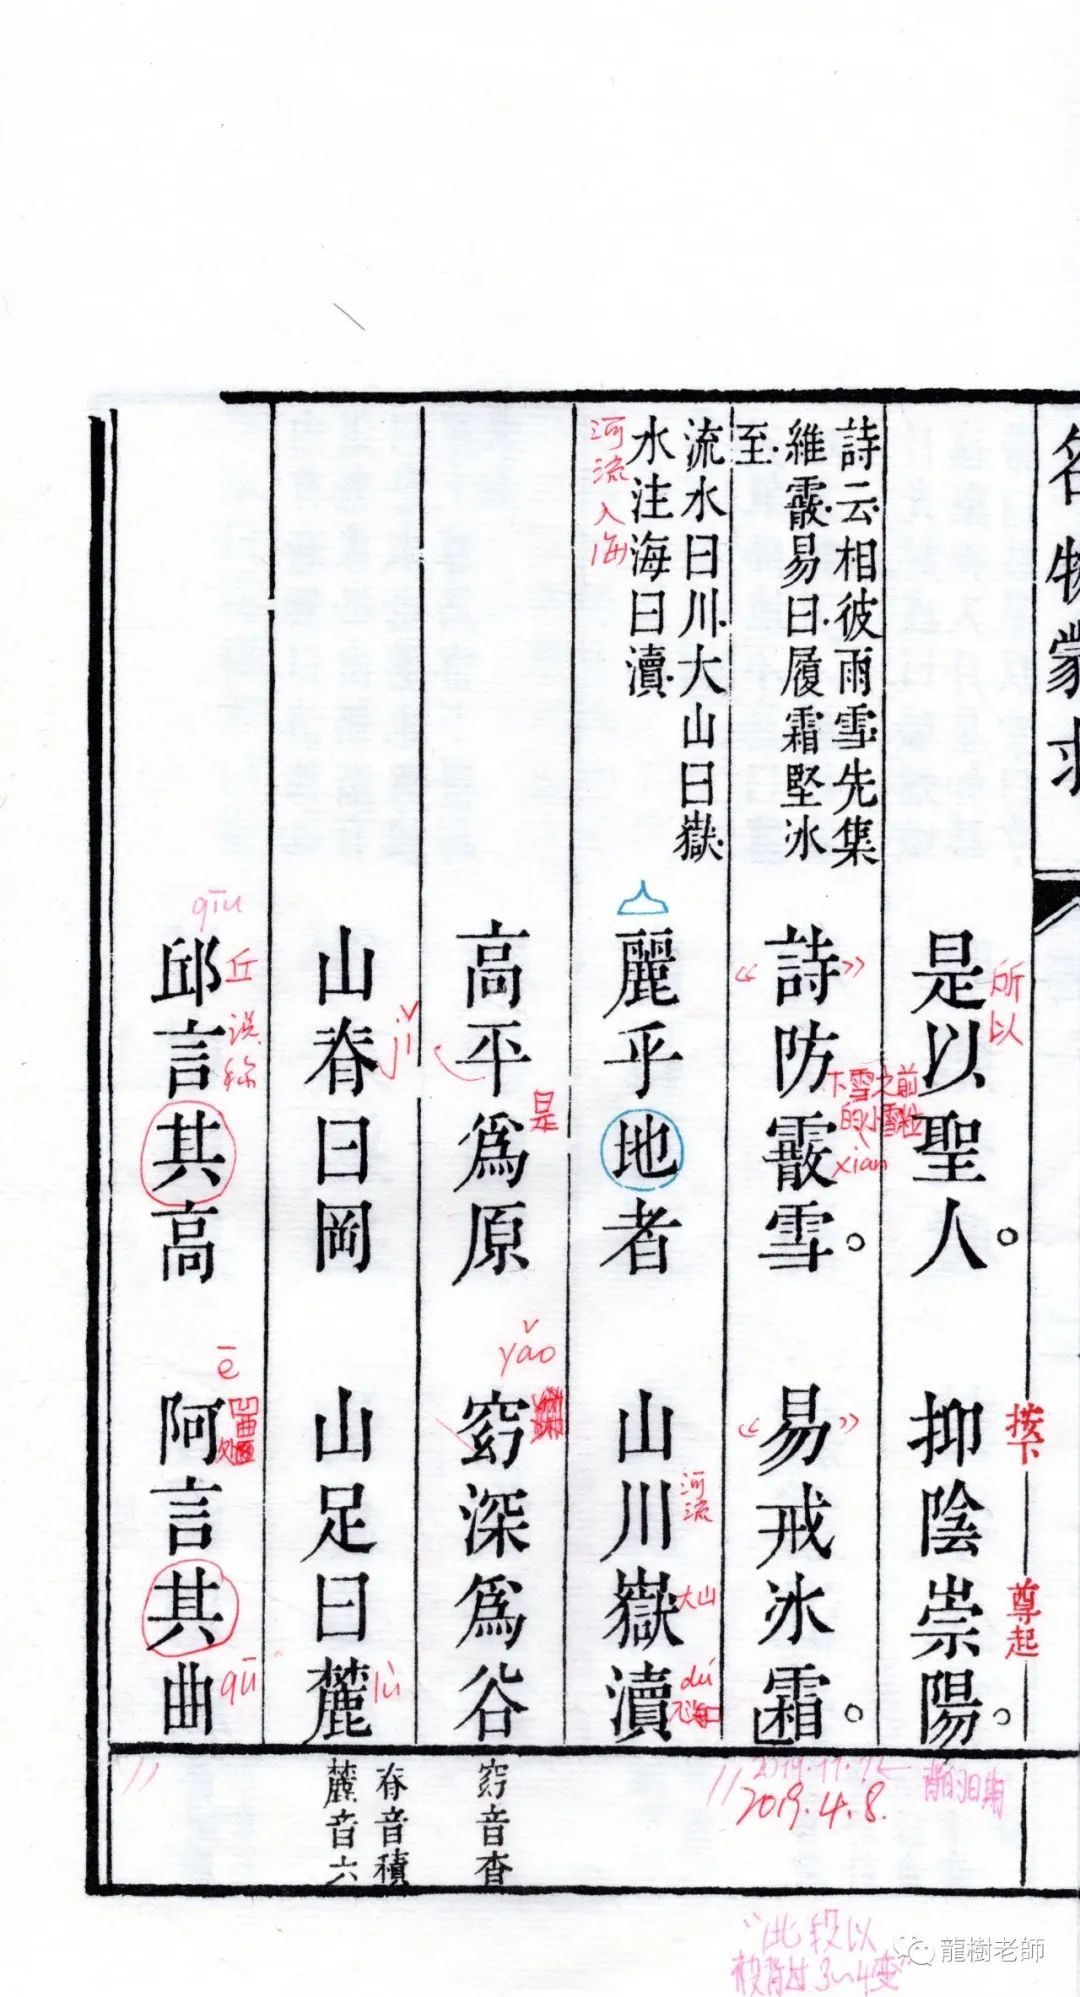 名物蒙求
詩云相彼雨雪先集
維霰易曰履霜堅冰
至
流水曰川大山曰嶽
水注海曰瀆
河流入海
是以聖人。
所以
抑陰崇陽。
按下
尊起
詩防霰雪。
下雪之前
的小雪粒
xian
易戒冰霜。
麗乎地者
山川嶽瀆
河流
大山
dú
入海口
高平爲原
是
yǎo
窈深爲谷
山脊曰岡
jǐ
山足曰麓
lù
qīu
邱言其高
丘
说称
ē
阿言其曲
凹曲處
qū
窈音杳
脊音積
麓音六
2019.4.8.
背的日期
"此段以
背过3~4变"
龍樹老師